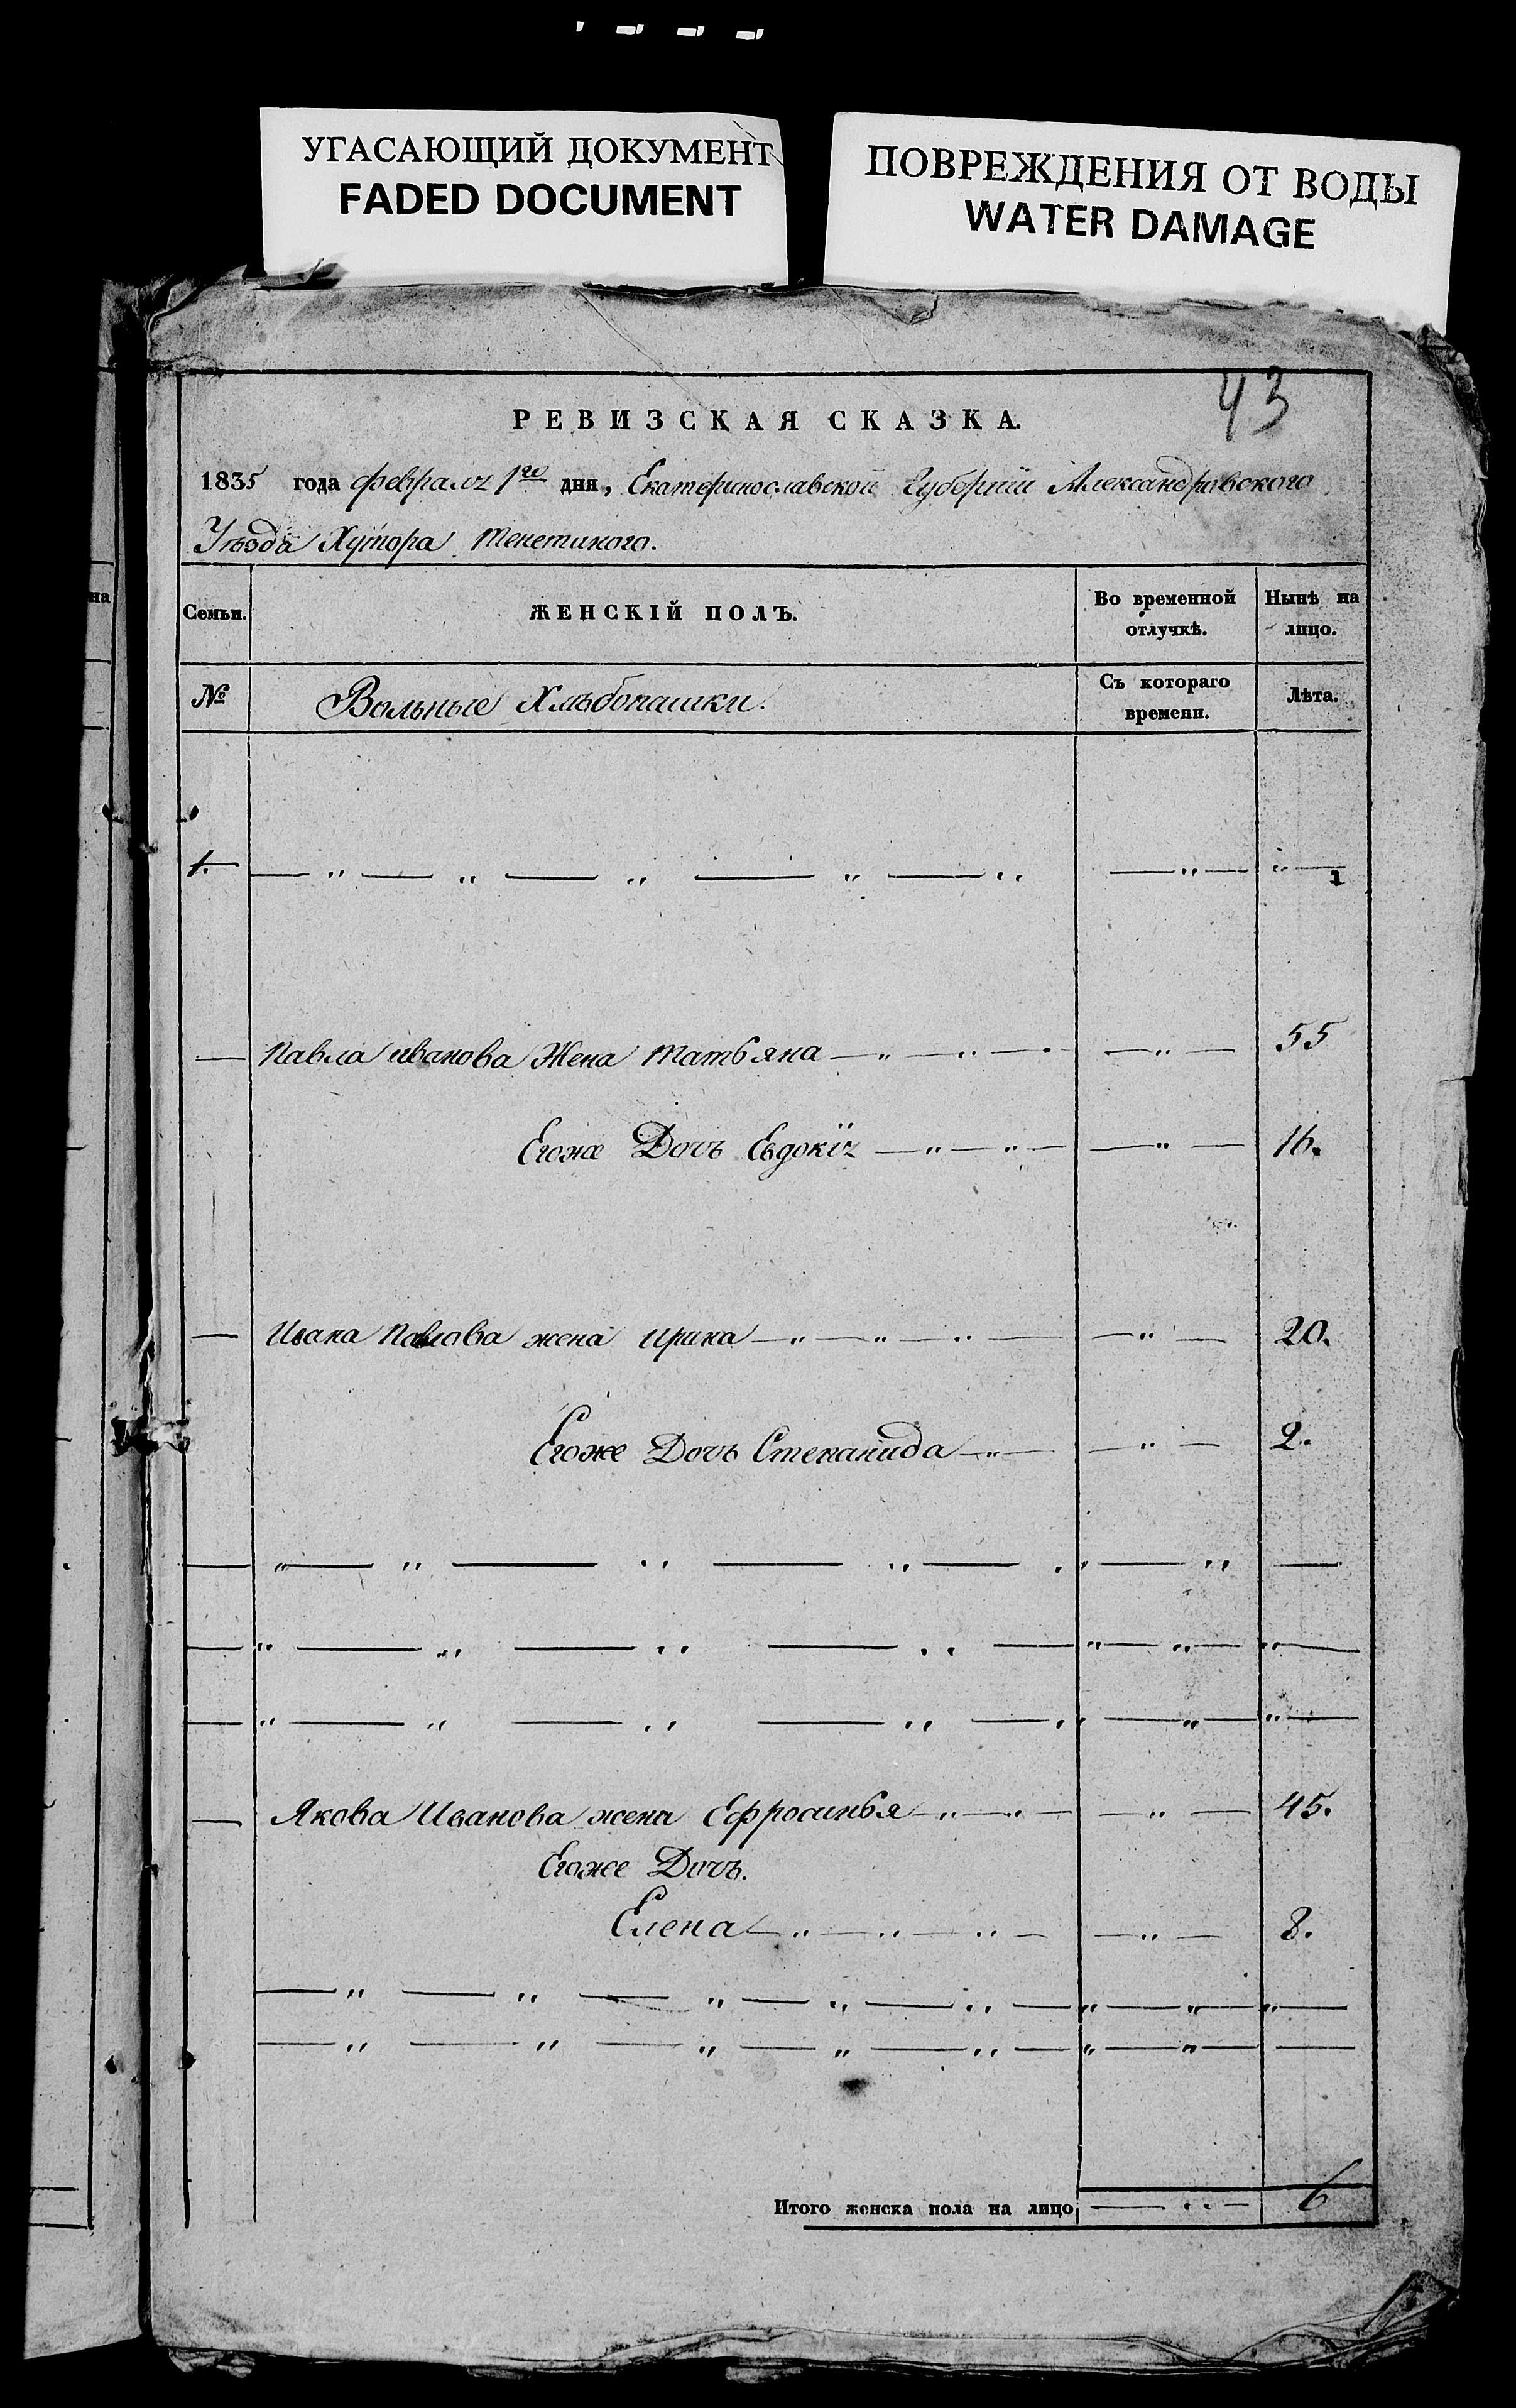 УГАСАЮЩИЙ ДОКУМЕНТ
FADED DOCUMENT
ПОВРЕЖДЕНИЯ ОТ ВОДЫ
WATER DAMAGE
43
РЕВИЗСКАЯ СКАЗКА.
1835 года февраля 1го дня, Екатеринославской Губерніи Александровского
Уѣзда Хутора
на
Семьи.
ЖЕНСКІЙ ПОЛЪ.
Во временной отлучкѣ.
Нынѣ на лицо.
№
Вольные Хлѣбопашки.
Съ котораго времени.
Лѣта.
1.
Павла иванова Жена Татьяна 55
Егоже Дочь Евдокія 16.
Ивана Павлова жена Ирина 20.
Егоже Дочь Степанида 2.
Якова Иванова жена Ефросинья 45.
Егоже Дочь.
Елена 8.
Итого женска пола на лицо 6